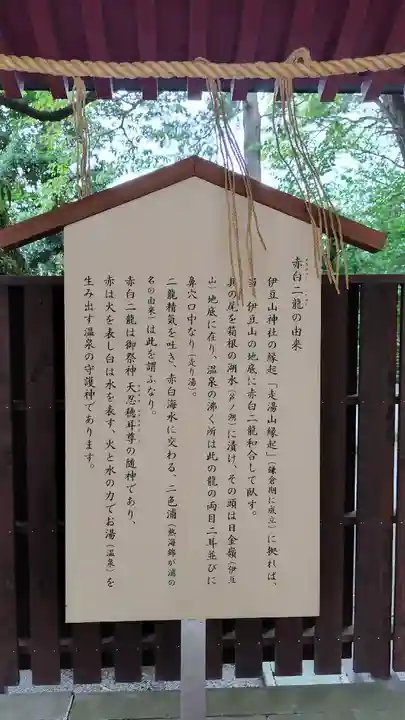 赤白二龍の由来
伊豆山神社の縁起「走湯山縁起」(鎌倉期に成立)に拠れば、
当、伊豆山の地底に赤白二龍和合して臥す。
其の尾を箱根の湖水(芦ノ湖)に漬け、その頭は日金嶺(伊豆
山)地底に在り、温泉の沸く所は此の龍の両目二耳並びに
鼻穴口中なり(走り湯)。
二龍精気を吐き、赤白海水に交わる、二色浦(熱海錦が浦の
名の由来)は此を謂ふなり。
赤白二龍は御祭神 天忍穂耳尊の随神であり、
赤は火を表し白は水を表す、火と水の力でお湯(温泉)を
生み出す温泉の守護神であります。